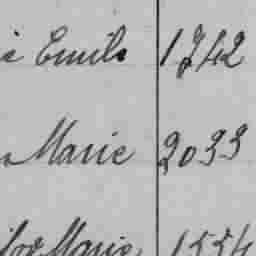 Emile 1742
Marie 2033
Marie 1554